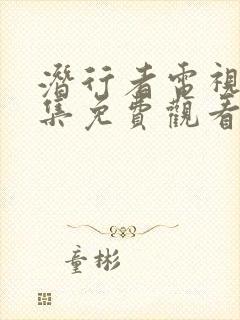 潛行者電視
集免費觀看
童彬